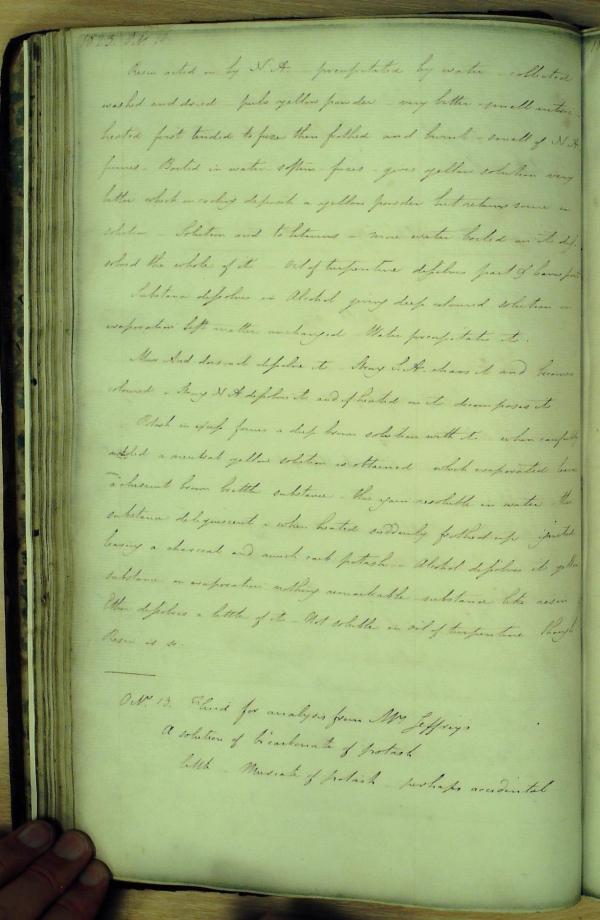 1823. Oct.
Resin acted on by N A. precipitated by water - collected
washed and dried pale yellow powder - very bitter - small
heated first tended to fuse then frothed and burnt - smell of N A
fumes - Boiled in water softens - fuses - gives yellow solution very
bitter which on cooling deposits a yellow powder but retains some in
solution - Solution acid to litmus - more water boiled on it dis-
solved the whole of it oil of turpentine dissolves part of
Substance dissolves in Alcohol giving deep coloured solution on
evaporation left matter unchanged Water precipitates it.
Mur Acid does not dissolve it - Strong S. A. chars it and becomes
coloured - Strong N A dissolves it and if heated on it decomposes it
Potash in excess forms a deep brown solution with it - when carefully
added a neutral yellow solution is obtained which evaporated leaves
a brown brittle substance - this again resoluble in water - this
substance deliquescent & when heated suddenly frothed up ignited
leaving a charcoal and much carb potash - Alcohol dissolves its yellow
substance on evaporation nothing remarkable - substance like resin
Ether dissolves a little of it - Not soluble in oil of turpentine though
Resin is so
Oct. 13. Fluid for analysis from Mr Jeffreys
A solution of bicarbonate of potash
little - Muriate of potash - perhaps accidental